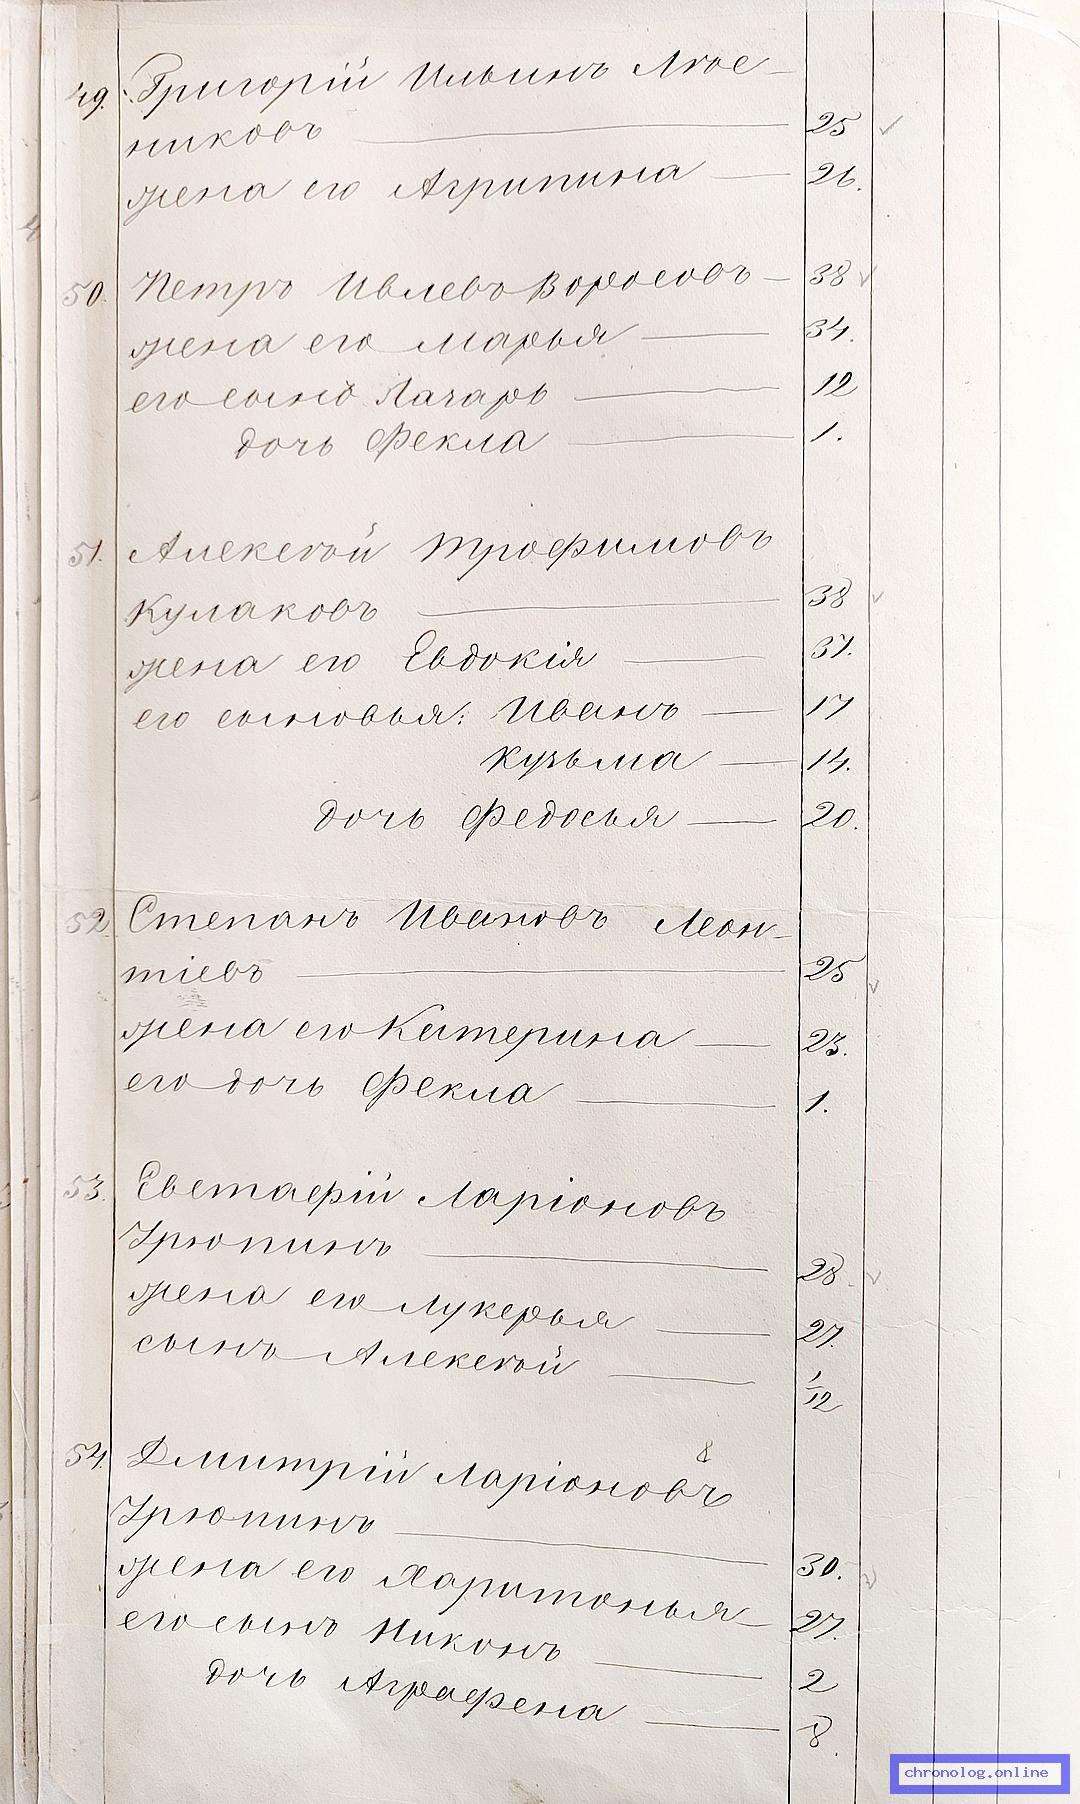 49. Григорій Ильинъ
никовъ — 25
жена его Агрипина — 26.
50. Петръ Ивлевъ — 38
жена его Марья — 34.
его сынъ Лазарь — 12
дочь Фекла — 1.
51. Алексѣй Трофимовъ
Кулаковъ — 38
жена его Евдокія — 37.
его сыновья: Иванъ — 17
Кузьма — 14.
дочь Федосья — 20.
52 Степанъ Ивановъ Леон-
тіевъ — 25
жена его Катерина — 23.
его дочь Фекла — 1.
53. Евстафій Ларіоновъ
Урюпинъ — 28.
жена его Лукерья — 27.
сынъ Алексѣй — 1/12
8
54. Дмитрій Ларіоновъ
Урюпинъ — 30.
жена его Харитонья — 27.
его сынъ Никонъ — 2
дочь Аграфена — 8.
chronolog.online